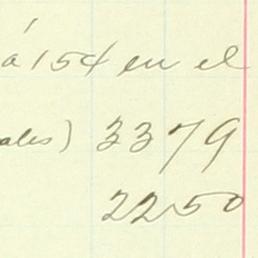 á 15¢ en el
ales) 3379
2250